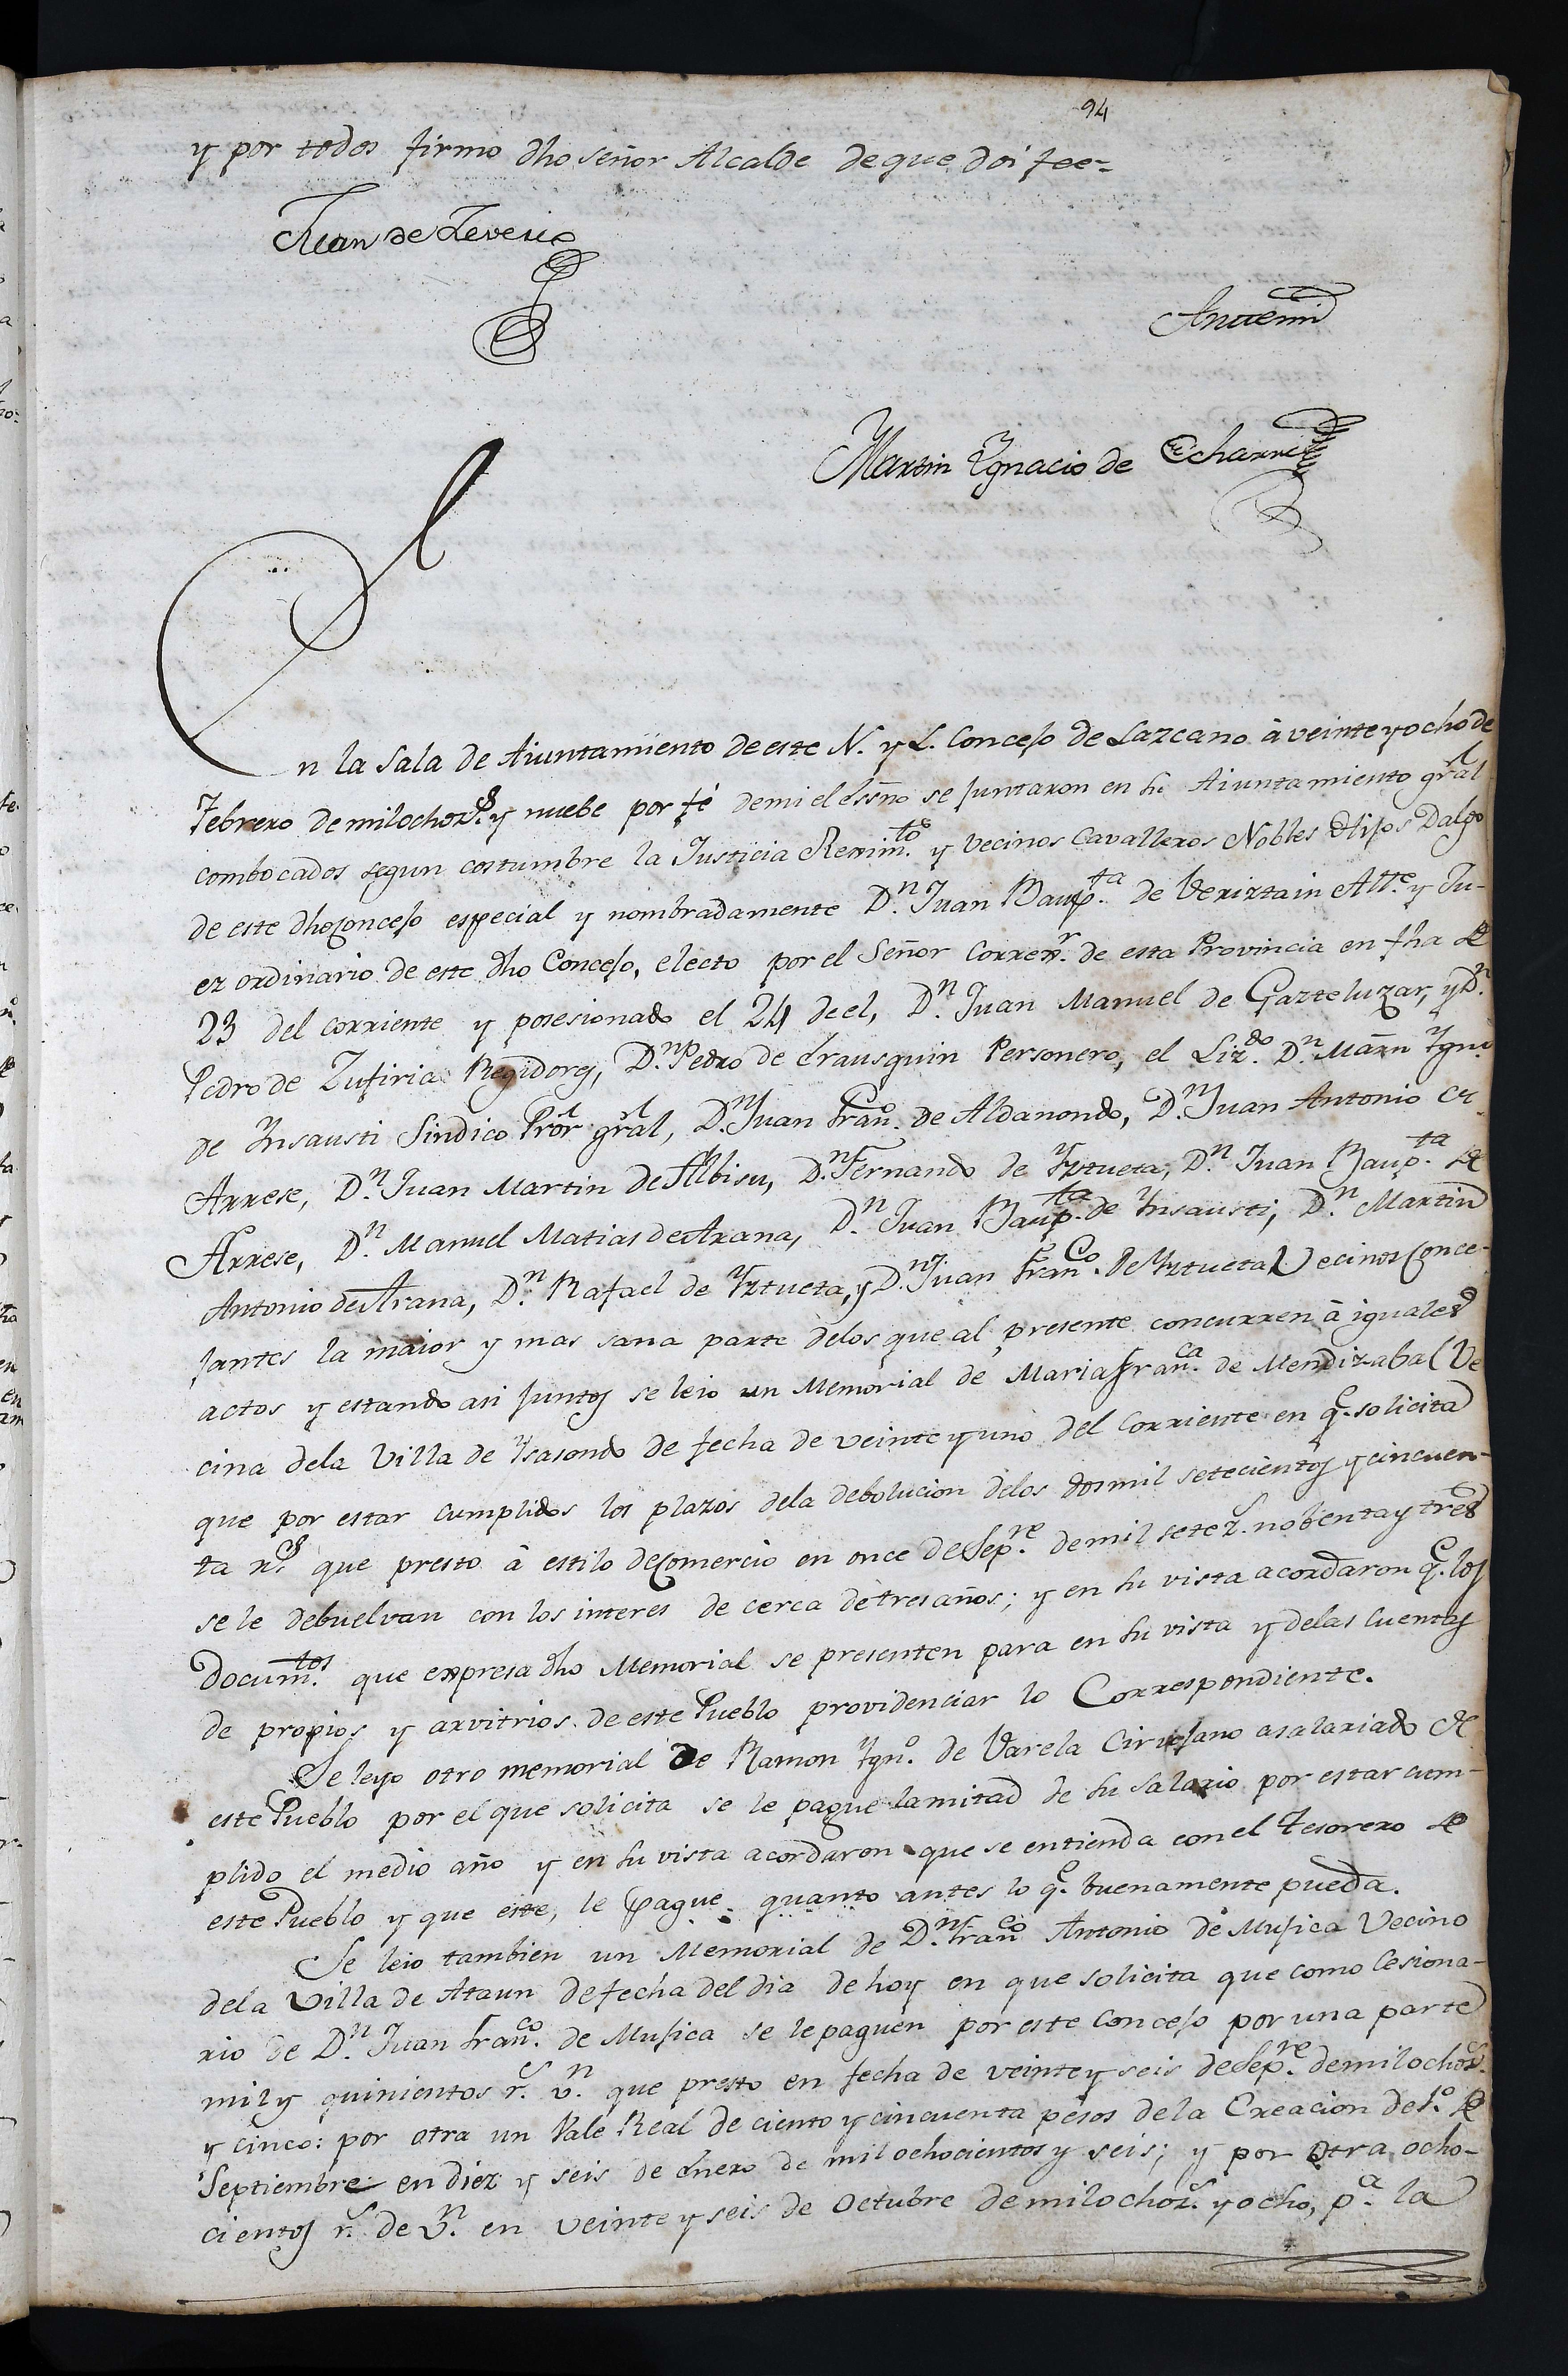 94
y por todos firmo dho señor Alcalde de que doi fee=
Juan de
Ante mi
Martin Ygnacio de Echarri
En la Sala de Aiuntamiento de este N. y L. Concejo de Lazcano à veinte y ocho de
Febrero de mil ochoz.s y nuebe por fé de mi el Essno se juntaron en su Aiuntamiento gral
combocados segun costumbre la Justicia Rexim.to y Vecinos Cavalleros Nobles Hijos Dalgo
de este dho Concejo especial y nombradamente D.n Juan Baup.ta de Veriztain Alle. y Ju-
ez ordinario de este dho Concejo, electo por el Señor Correx.r de esta Provincia en fha de
23 del corriente y posesionado el 24 de el, D.n Juan Manuel de Gazteluzar, y D.n
Pedro de Zufiria Regidores, D.n Pedro de Erausquin Personero, el Liz.do D.n Marn Ygn.o
de Ynsausti Sindico Pror gral, D.n Juan Fran.co de Aldanondo, D.n Juan Antonio de
Arrese, D.n Juan Martin de Albisu, D.n Fernando de Yztueta, D.n Juan Baup.ta de
Arrese, D.n Manuel Matias de Arana, D.n Juan Baup.ta de Ynsausti, D.n Martin
Antonio de Arana, D.n Rafael de Yztueta, y D.n Juan Fran.co de Yztueta Vecinos Conce-
jantes la maior y mas sana parte delos que al presente concurren à iguales
actos y estando asi juntos se leio un Memorial de Maria Fran.ca de Mendizabal Ve
cina dela Villa de Ysasondo de fecha de veinte y uno del corriente en q.e solicita
que por estar cumplidos los plazos dela debolucion delos dos mil setecientos y cincuen-
ta r.s que presto à estilo de Comercio en once de Sep.re de mil setez.s nobenta y tres
se le debuelvan con los interes de cerca de tres años; y en su vista acordaron q.e los
Docum.tos que expresa dho Memorial se presenten para en su vista y delas Cuentas
de propios y arvitrios de este Pueblo providenciar lo Correspondiente.
Se leyo otro memorial de Ramon Ygn.o de Varela Cirujano asalariado de
este Pueblo por el que solicita se le pague la mitad de su Salario por estar cum-
plido el medio año y en su vista acordaron que se entienda con el Tesorero de
este Pueblo y que este, le pague quanto antes lo q.e buenamente pueda.
Se leio tambien un Memorial de D.n Fran.co Antonio de Mujica Vecino
dela Villa de Ataun de fecha del dia de hoy en que solicita que como Cesiona-
rio de D.n Juan Fran.co de Mujica se le paguen por este Concejo por una parte
mil y quinientos r.s v.n que presto en fecha de veinte y seis de Sep.re de mil ochoz.s
y cinco: por otra un Vale Real de ciento y cincuenta pesos de la Creacion de 1.o de
Septiembre en diez y seis de Enero de mil ochocientos y seis; y por otra ocho-
cientos r.s de v.n en veinte y seis de Octubre de mil ochoz.s y ocho, p.a la